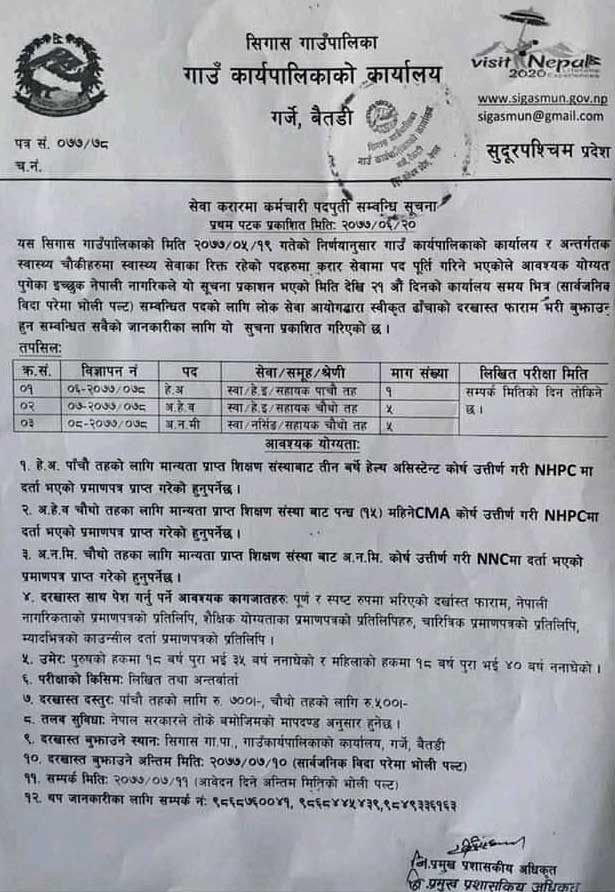 सिगास गाउँपालिका
गाउँ कार्यपालिकाको कार्यालय
गर्जे, बैतडी
visit Nepal
2020 Lifetime Experiences
www.sigasmun.gov.np
sigasmun@gmail.com
पत्र सं. ०७७/७८
च.नं.
सुदूरपश्चिम प्रदेश
सेवा करारमा कर्मचारी पदपुर्ती सम्वन्धि सूचना
प्रथम पटक प्रकाशित मिति: २०७७/०६/२०
यस सिगास गाउँपालिकाको मिति २०७७/०५/१९ गतेको निर्णयानुसार गाउँ कार्यपालिकाको कार्यालय र अन्तर्गतक
स्वास्थ्य चौकीहरुमा स्वास्थ्य सेवाका रिक्त रहेको पदहरुमा करार सेवामा पद पूर्ति गरिने भएकोले आवश्यक योग्यत
पुगेका इच्छुक नेपाली नागरिकले यो सूचना प्रकाशन भएको मिति देखि २१ औं दिनको कार्यालय समय भित्र (सार्बजनिक
विदा परेमा भोली पल्ट) सम्वन्धित पदको लागि लोक सेवा आयोगद्वारा स्वीकृत ढाँचाको दरखास्त फाराम भरी बुझाउन
हुन सम्वन्धित सबैको जानकारीका लागि यो सुचना प्रकाशित गरिएको छ ।
तपसिल:
क्र.सं. विज्ञापन नं पद सेवा/समूह/श्रेणी माग संख्या लिखित परीक्षा मिति
०१ ०६-२०७७/०७८ हे.अ स्वा/हे.इ/सहायक पाचौ तह १ सम्पर्क मितिको दिन तोकिने
०२ ०७-२०७७/०७८ अ.हे.व स्वा/हे.इ/सहायक चौथो तह ५ छ ।
०३ ०८-२०७७/०७८ अ.न.मी स्वा/नर्सिङ/सहायक चौथो तह ५
आवश्यक योग्यता:
१. हे.अ. पाँचौ तहको लागि मान्यता प्राप्त शिक्षण संस्थाबाट तीन बर्षे हेल्थ असिस्टेन्ट कोर्ष उत्तीर्ण गरी NHPC मा
दर्ता भएको प्रमाणपत्र प्राप्त गरेको हुनुपर्नेछ ।
२. अ.हे.व चौथो तहका लागि मान्यता प्राप्त शिक्षण संस्था बाट पन्ध्र (१५) महिनेCMA कोर्ष उत्तीर्ण गरी NHPCमा
दर्ता भएको प्रमाणपत्र प्राप्त गरेको हुनुपर्नेछ ।
३. अ.न.मि. चौथो तहका लागि मान्यता प्राप्त शिक्षण संस्था बाट अ.न.मि. कोर्ष उत्तीर्ण गरी NNCमा दर्ता भएको
प्रमाणपत्र प्राप्त गरेको हुनुपर्नेछ ।
४. दरखास्त साथ पेश गर्नु पर्ने आवश्यक कागजातहरु: पूर्ण र स्पष्ट रुपमा भरिएको दर्खास्त फाराम, नेपाली
नागरिकताको प्रमाणपत्रको प्रतिलिपि, शैक्षिक योग्यताका प्रमाणपत्रको प्रतिलिपिहरु, चारित्रिक प्रमाणपत्रको प्रतिलिपि,
म्यादभित्रको काउन्सील दर्ता प्रमाणपत्रको प्रतिलिपि ।
५. उमेर: पुरुषको हकमा १८ बर्ष पुरा भई ३५ बर्ष ननाघेको र महिलाको हकमा १८ बर्ष पुरा भई ४० बर्ष ननाघेको ।
६. परीक्षाको किसिम: लिखित तथा अन्तर्वार्ता
७. दरखास्त दस्तुर: पाँचौ तहको लागि रु. ७००।-, चौथो तहको लागि रु.५००।-
८. तलब सुविधा: नेपाल सरकारले तोके बमोजिमको मापदण्ड अनुसार हुनेछ ।
९. दरखास्त बुझाउने स्थान: सिगास गा.पा., गाउँकार्यपालिकाको कार्यालय, गर्जे, बैतडी
१०. दरखास्त बुझाउने अन्तिम मिति: २०७७/०७/१० (सार्बजनिक विदा परेमा भोली पल्ट)
११. सम्पर्क मिति: २०७७/०७/११ (आवेदन दिने अन्तिम मितिको भोली पल्ट)
१२. थप जानकारीका लागि सम्पर्क नं: ९८६८७६००४१, ९८६८४४५४३९,९८४९३३६१६३
नि.प्रमुख प्रशासकीय अधिकृत
नि.प्रमुख प्रशासकिय अधिकृत